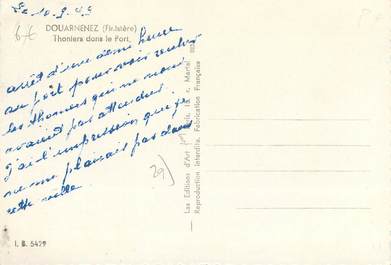 Le 10.9.49
6€
DOUARNENEZ (Finistère)
Thoniers dans le Port.
arrêt d'une demi heure
au port pour voir rentrer
les thoniers qui ne nous
avaient pas attendus
j'ai l'impression que je
ne me plairais pas dans
cette ville
29)
Les Editions d'Art
Reproduction interdite. Fabrication Française
I. B. 5429